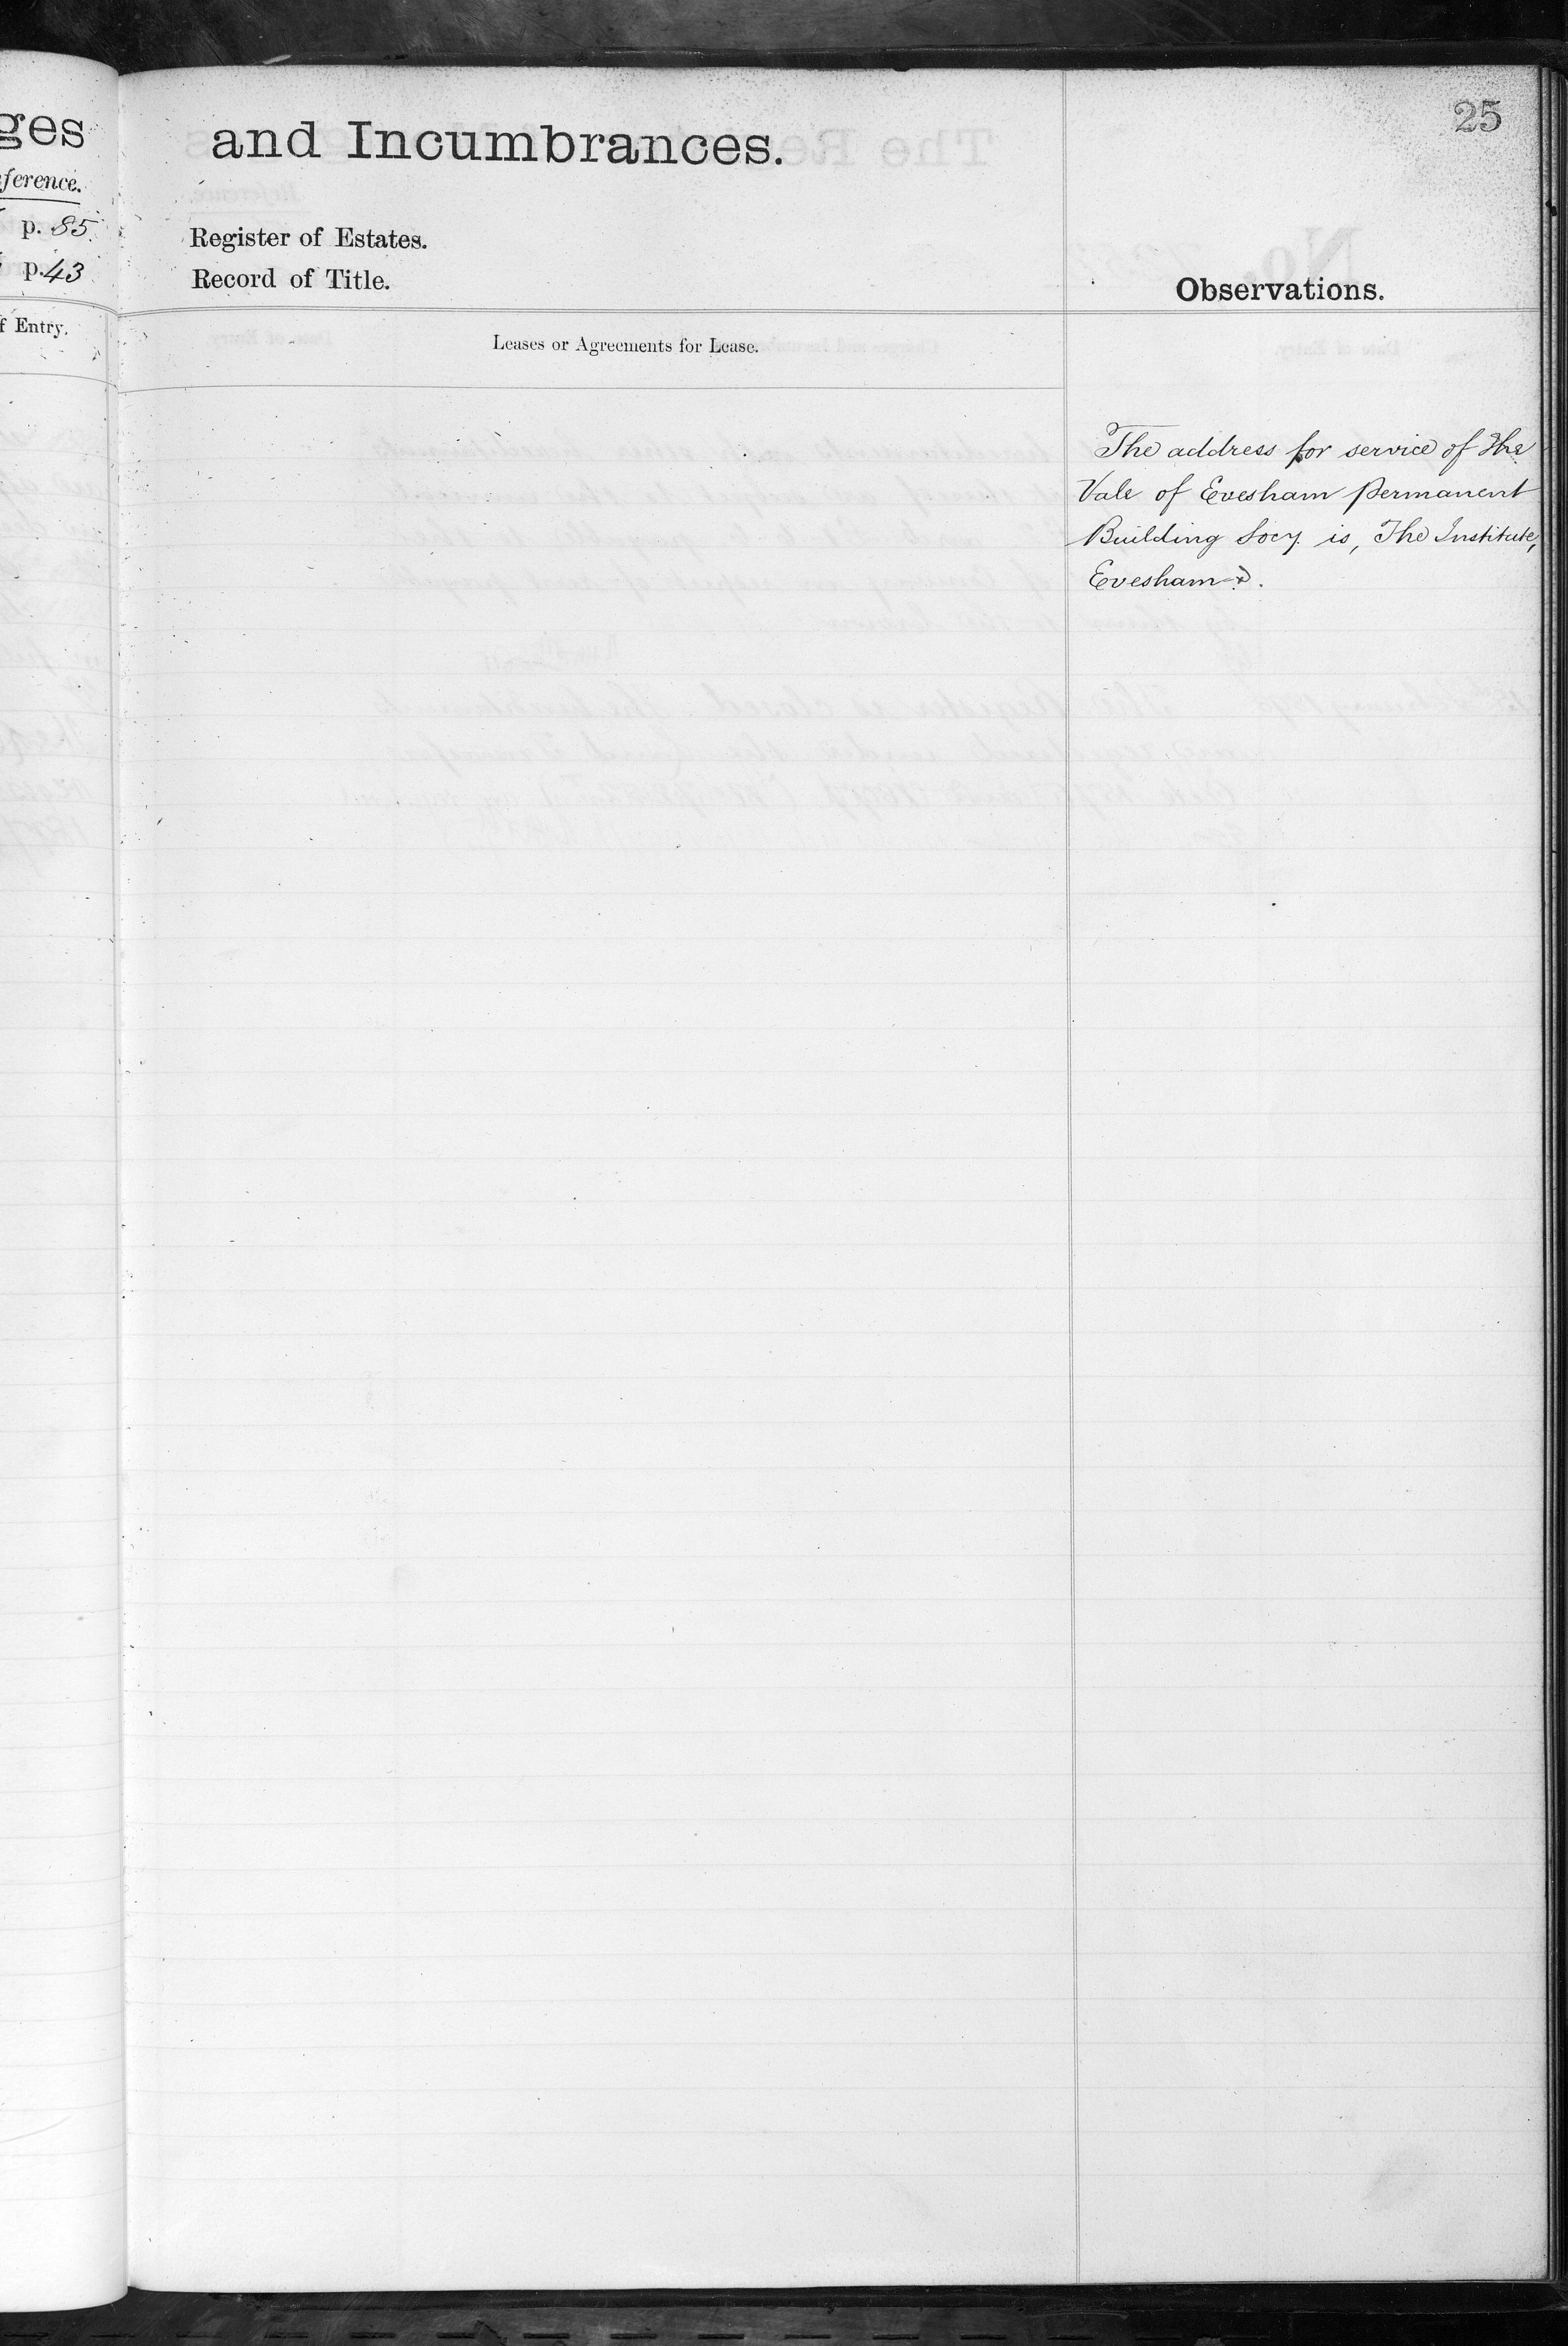 25
ges
and Incumbrances.
ference.
p. 85.
Register of Estates.
p. 43
Record of Title.
Observations.
f Entry.
Leases or Agreements for Lease.
The address for service of the
Vale of Evesham Permanent
Building Socy. is, The Institute,
Evesham